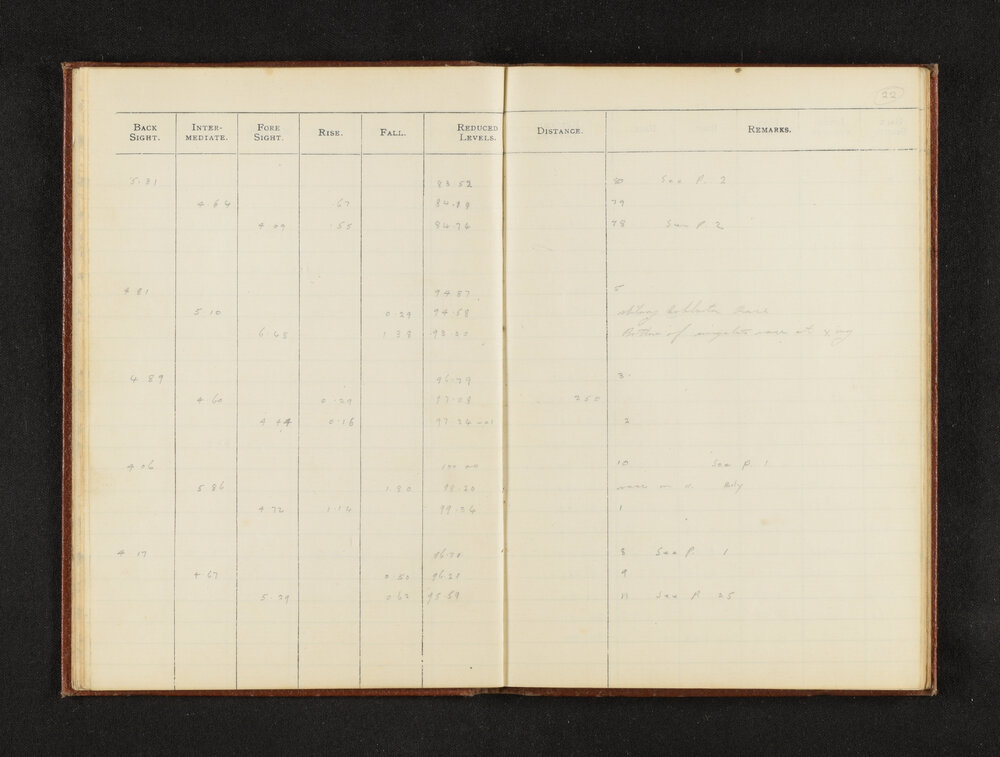 22
BACK SIGHT. INTER-MEDIATE. FORE SIGHT. RISE. FALL. REDUCED LEVELS. DISTANCE. REMARKS.
5.31 83.52 80 See P. 2
4 64 .67 84.19 79
4 09 .55 84.74 78 See P. 2
4 81 94 87 5
5 10 0.29 94.58
6.48 1.38
4 89 96.79 3.
4 60 0.29 97.08 250
4 44 0.16 97.24 2
4 06 100 00 10 See P. 1
5.86 1.80 98.20
4 72 1.14 99.34 1
4 17 8 See P. 1
4 67 0.50 96.21 9
5.29 0.62 95.59 11 See P 25